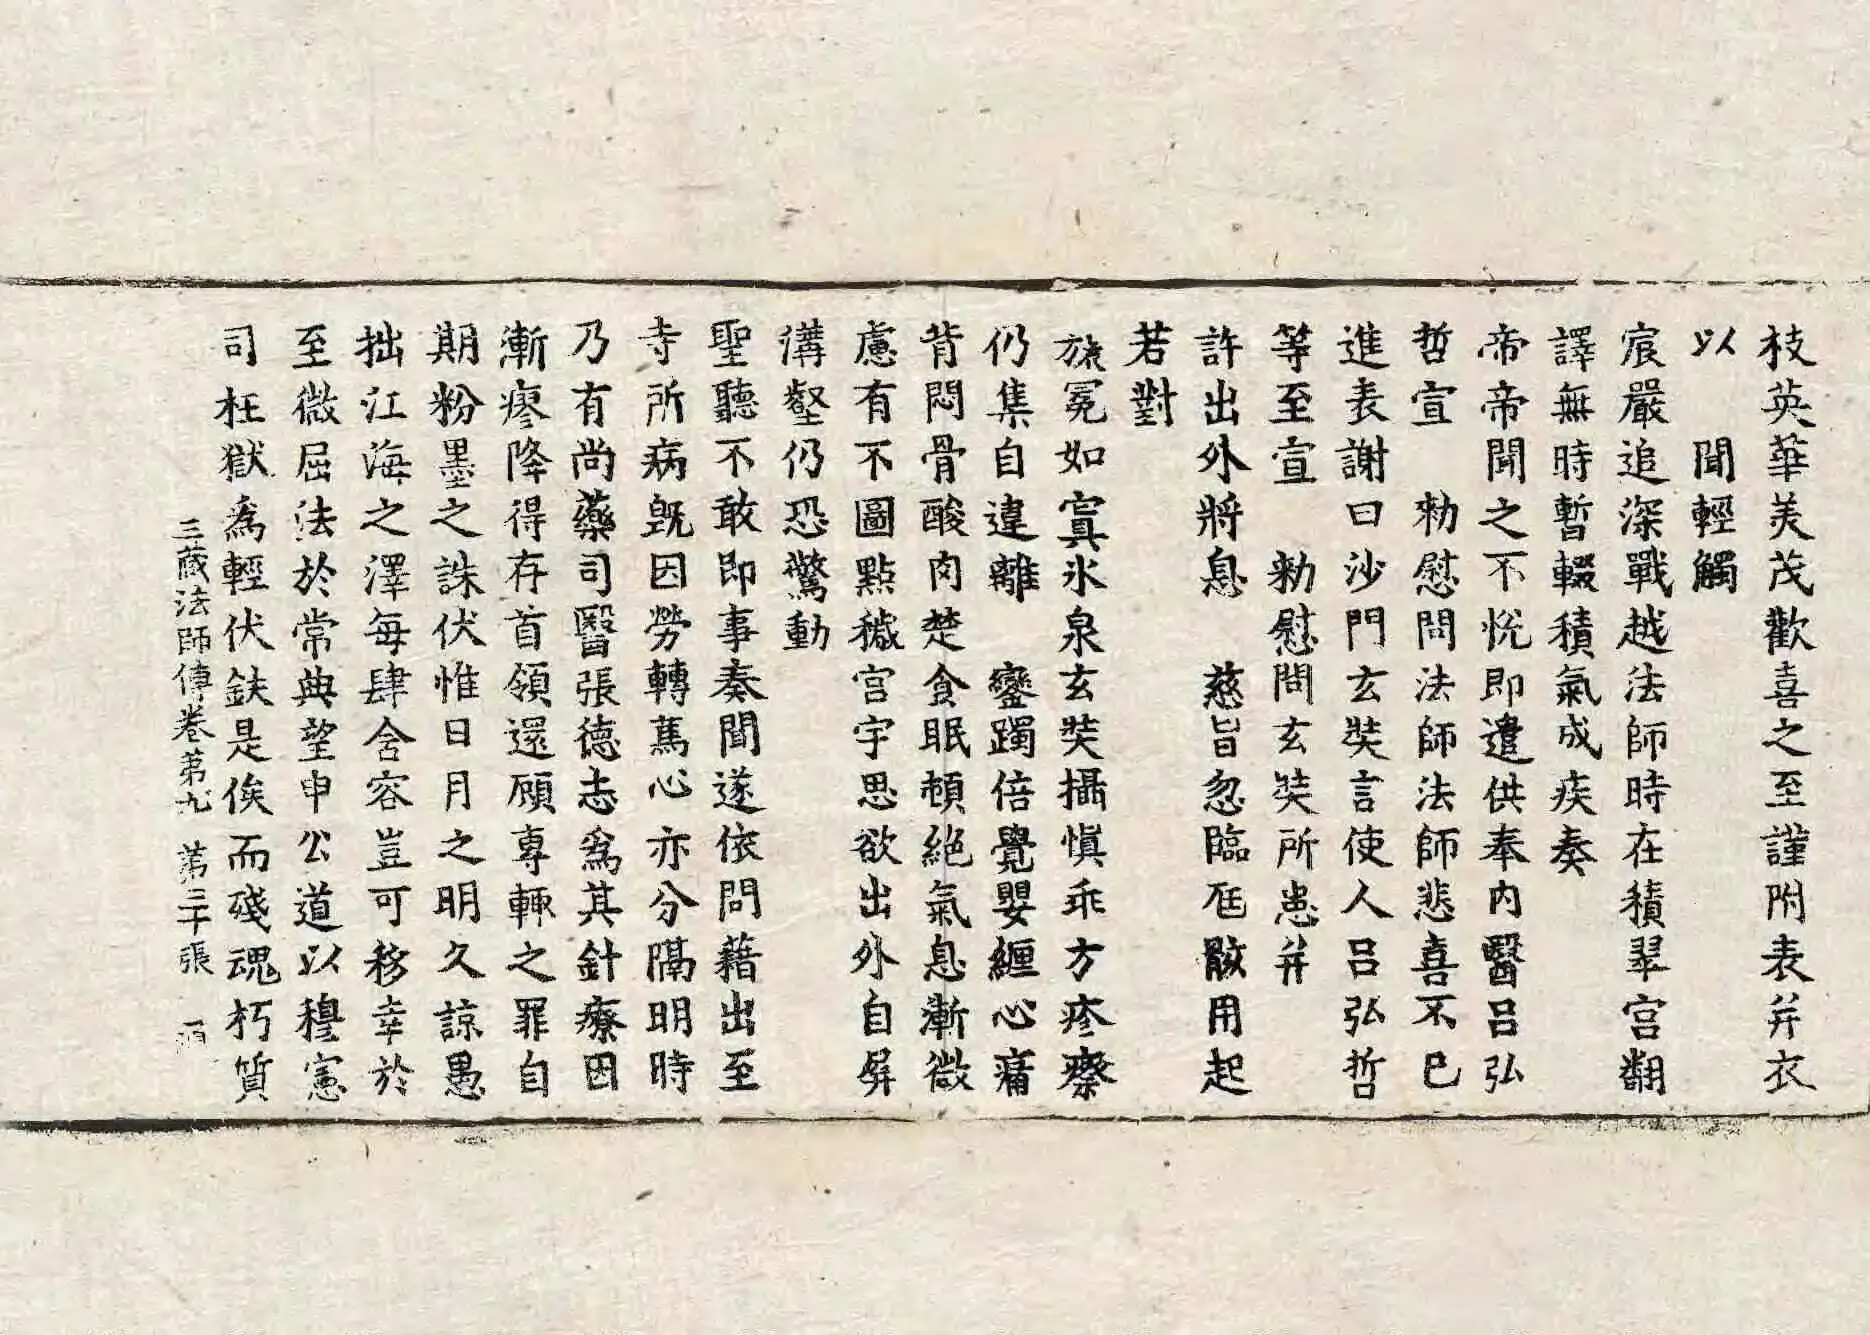 枝英華美茂歡喜之至謹附表并衣
以　聞輕觸
宸嚴追深戰越法師時在積翠宮翻
譯無時暫輟積氣成疾奏
帝帝聞之不悅即遣供奉內醫呂弘
哲宣　勑慰問法師法師悲喜不已
進表謝曰沙門玄奘言使人呂弘哲
等至宣　勑慰問玄奘所患并
許出外將息　慈旨忽臨尫骸用起
若對
旒冕如寘氷泉玄奘攝慎乖方疹瘵
仍集自違離　鑾躅倍覺嬰纏心痛
背悶骨酸肉楚食眠頓絕氣息漸微
慮有不圖點穢宮宇思欲出外自屏
溝壑仍恐驚動
聖聽不敢即事奏聞遂依問藉出至
寺所病旣因勞轉篤心亦分隔明時
乃有尚藥司醫張德志爲其針療因
漸瘳降得存首領還顧專輒之罪自
期粉墨之誅伏惟日月之明久諒愚
拙江海之澤每肆含容豈可移幸於
至微屈法於常典望申公道以穆憲
司枉獄爲輕伏鈇是俟而殘魂朽質
三藏法師傳卷第九　第三十張